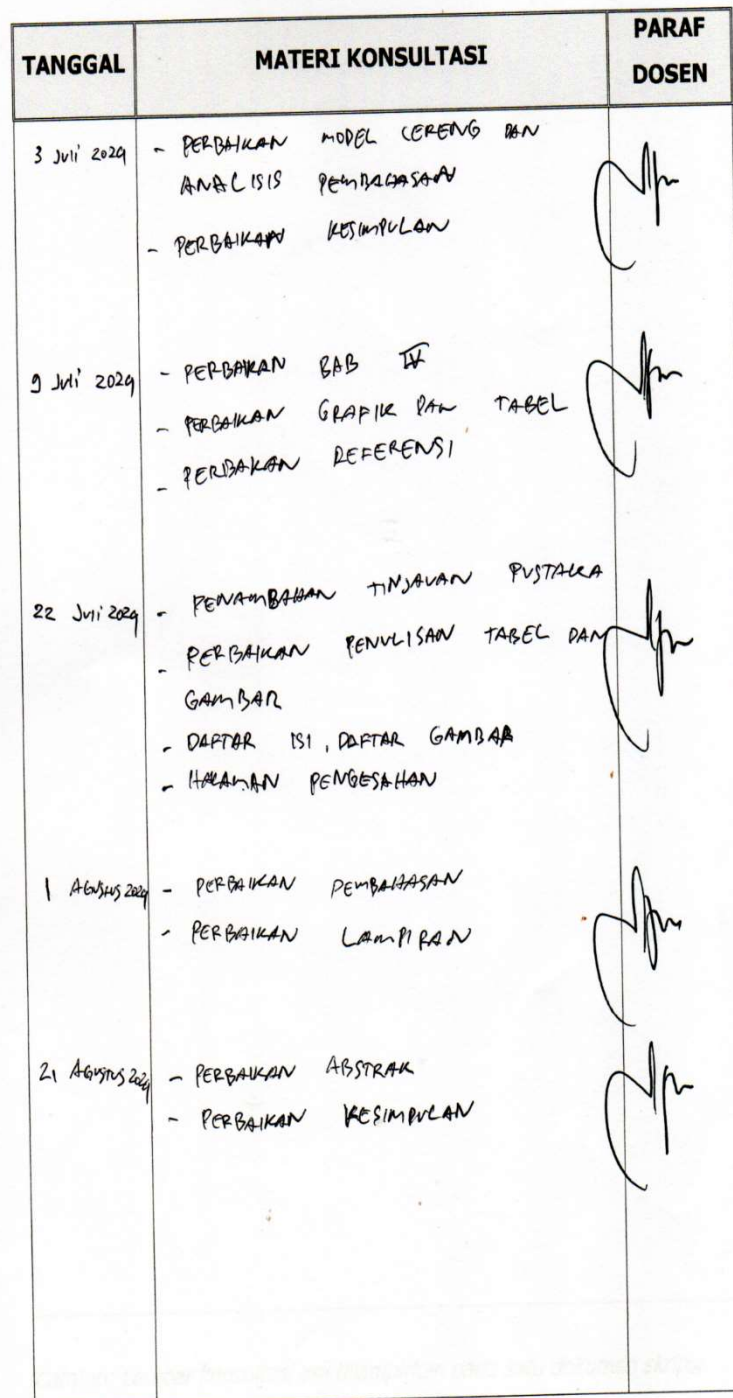 TANGGAL MATERI KONSULTASI PARAF DOSEN
3 Juli 2024 - PERBAIKAN MODEL LERENG DAN
ANALISIS PEMBAHASAN
- PERBAIKAN KESIMPULAN
9 Juli 2024 - PERBAIKAN BAB IV
- PERBAIKAN GRAFIK DAN TABEL
- PERBAIKAN REFERENSI
22 Juli 2024 - PENAMBAHAN TINJAUAN PUSTAKA
- PERBAIKAN PENULISAN TABEL DAN
GAMBAR
- DAFTAR ISI, DAFTAR GAMBAR
- HALAMAN PENGESAHAN
1 AGUSTUS 2024 - PERBAIKAN PEMBAHASAN
- PERBAIKAN LAMPIRAN
21 AGUSTUS 2024 - PERBAIKAN ABSTRAK
- PERBAIKAN KESIMPULAN